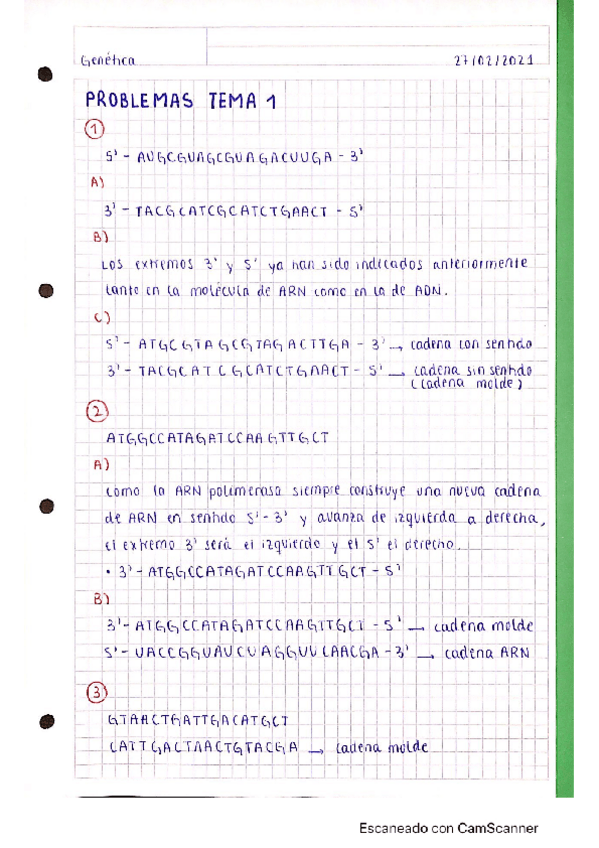 Genética 27/02/2021
PROBLEMAS TEMA 1
1
5' - AUGCGUAGCGUAGACUUGA - 3'
A)
3' - TACGCATCGCATCTGAACT - 5'
B)
Los extremos 3' y 5' ya han sido indicados anteriormente
tanto en la molécula de ARN como en la de ADN.
C)
5' - ATGCGTAGCGTAGACTTGA - 3' → cadena con sentido
3' - TACGCATCGCATCTGAACT - 5' → cadena sin sentido
(cadena molde)
2
ATGGCCATAGATCCAAGTTGCT
A)
Como la ARN polimerasa siempre construye una nueva cadena
de ARN en sentido 5'-3' y avanza de izquierda a derecha,
el extremo 3' será el izquierdo y el 5' el derecho.
• 3' - ATGGCCATAGATCCAAGTTGCT - 5'
B)
3' - ATGGCCATAGATCCAAGTTGCT - 5' → cadena molde
5' - UACCGGUAUCUAGGUUCAACGA - 3' → cadena ARN
3
GTAACTGATTGACATGCT
CATTGACTAACTGTACGA → cadena molde
Escaneado con CamScanner